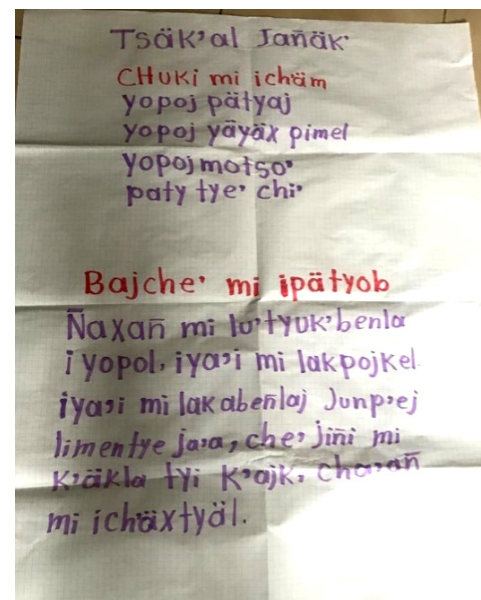 Tsäk’al Jañäk’
CHUKi mi ichäm
yopoj pätyaj
yopoj yäyäx pimel
yopoj motso’
paty tye’ chi’
Bajche’ mi ipätyob
Ñaxañ mi lu’tyuk’benla
i yopol, iya’i mi lakpojkel.
iya’i mi lak abeñlaj Junp’ej
limentye ja’a, che’ jiñi mi
k’äkla tyi k’ajk. cha’añ
mi ichäxtyäl.